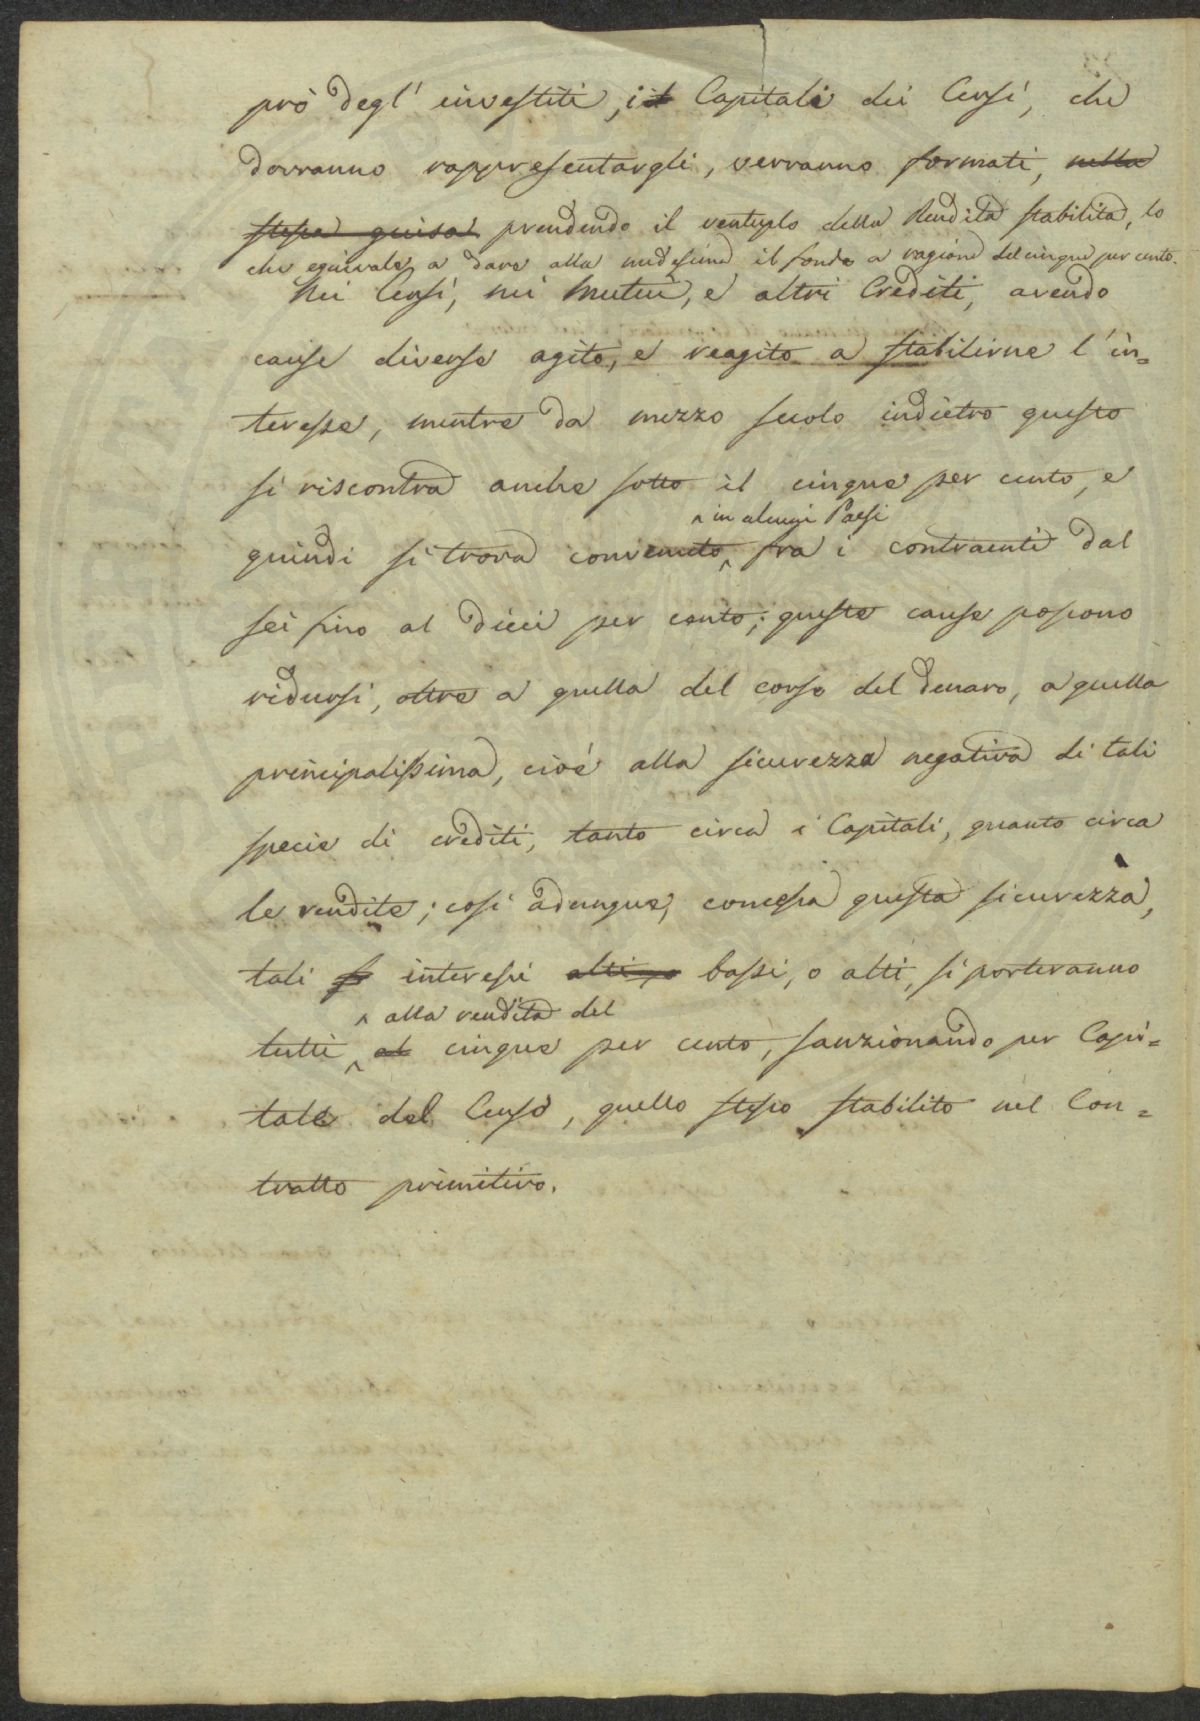 prò degl' investiti, i il Capitali dei Censi, che
dovranno rappresentargli, verranno formati, nella
stessa guisa prendendo il ventuplo della Rendita stabilita, lo
che equivale a dare alla medesima il fondo a ragione del cinque per cento.
Nei Censi, nei Mutui, e altri Crediti, avendo
cause diverse agito, e reagito a stabilirne l'in=
teresse, mentre da mezzo secolo indietro questo
si riscontra anche sotto il cinque per cento, e
^ in alcuni Paesi
quindi si trova convenuto ^ fra i contraenti dal
sei fino al dieci per cento; queste cause possono
ridursi, oltre a quella del corso del denaro, a quella
principalissima, cioè alla sicurezza negativa di tali
specie di crediti, tanto circa i Capitali, quanto circa
le rendite; così adunque, concessa questa sicurezza,
tali interessi alti, o bassi, o alti, si porteranno
^ alla rendita del
tutti ^ al cinque per cento, sanzionando per Capi=
tale del Censo, quello stesso stabilito nel Con=
tratto primitivo.